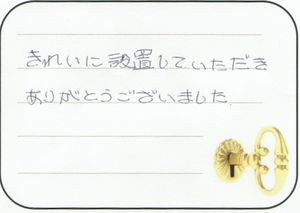 きれいに設置していただき
ありがとうございました